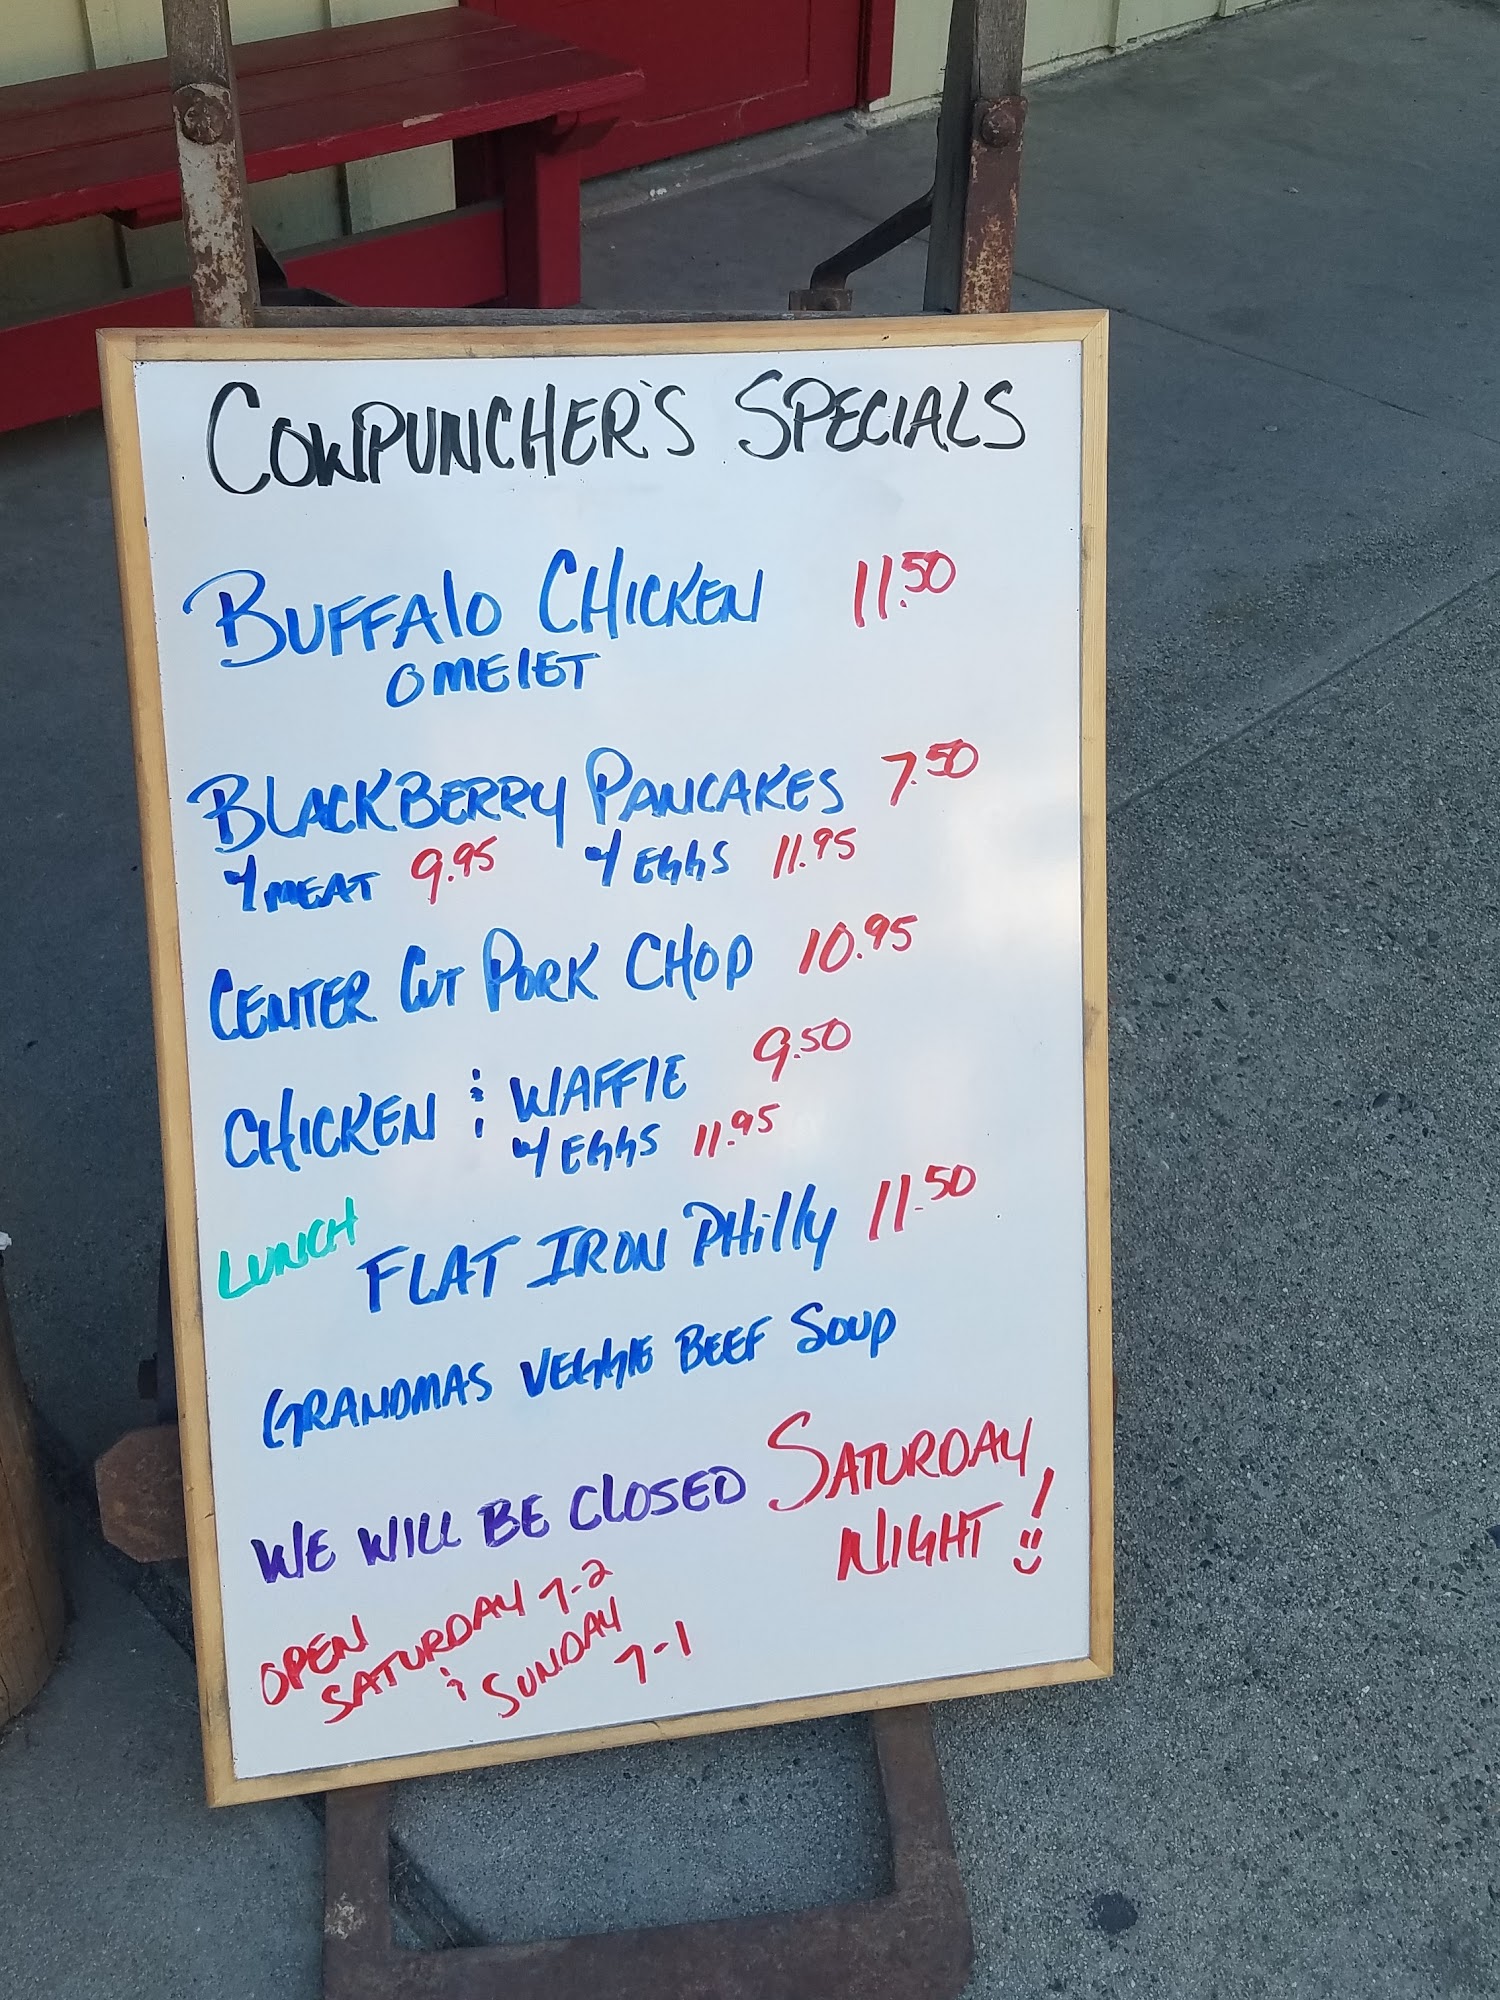 COWPUNCHER'S SPECIALS
BUFFALO CHICKEN 11.50
OMELET
BLACKBERRY PANCAKES 7.50
W/ MEAT 9.95 W/ EGGS 11.95
CENTER CUT PORK CHOP 10.95
CHICKEN & WAFFLE 9.50
W/ EGGS 11.95
LUNCH FLAT IRON PHILLY 11.50
GRANDMAS VEGGIE BEEF SOUP
WE WILL BE CLOSED SATURDAY
NIGHT!
OPEN
SATURDAY 7-2
& SUNDAY
7-1